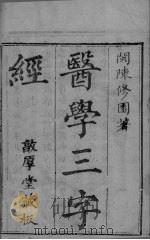 閩陳修園著
醫學三字
經
敦厚堂藏板